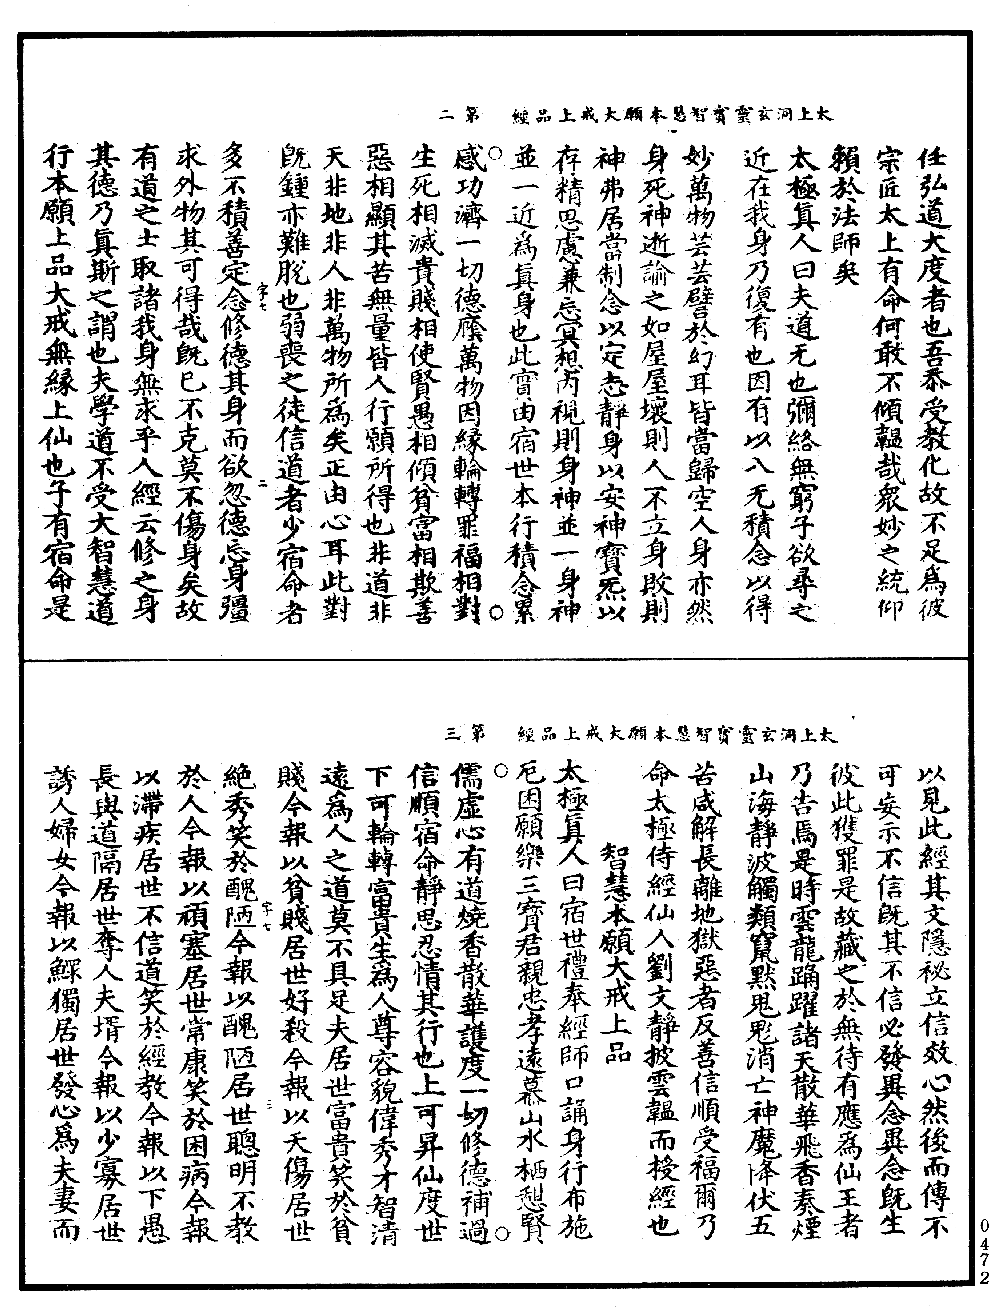 太上洞玄靈寶智慧本願大戒上品經　第二
任弘道大度者也吾忝受教化故不足為彼
宗匠太上有命何敢不傾韞哉眾妙之統仰
賴於法師矣
太極真人曰夫道无也彌絡無窮子欲尋之
近在我身乃復有也因有以入无積念以得
妙萬物芸芸譬於幻耳皆當歸空人身亦然
身死神逝諭之如屋屋壞則人不立身敗則
神弗居當制念以定志靜身以安神寶炁以
存精思慮兼忘冥想內視則身神並一身神
並一近為真身也此實由宿世本行積念累
感功濟一切德廕萬物因緣輪轉罪福相對
生死相滅貴賤相使賢愚相傾貧富相欺善
惡相顯其苦無量皆人行願所得也非道非
天非地非人非萬物所為矣正由心耳此對
既鍾亦難脫也弱喪之徒信道者少宿命者
字七　二
多不積善定念修德其身而欲忽德忘身彊
求外物其可得哉既已不克莫不傷身矣故
有道之士取諸我身無求乎人經云修之身
其德乃真斯之謂也夫學道不受大智慧道
行本願上品大戒無緣上仙也子有宿命是
太上洞玄靈寶智慧本願大戒上品經　第三
以見此經其文隱祕立信效心然後而傳不
可妄示不信既其不信必發異念異念既生
彼此獲罪是故藏之於無待有應為仙王者
乃告焉是時雲龍踊躍諸天散華飛香奏煙
山海靜波觸類竄黙鬼鬽消亡神魔降伏五
苦咸解長離地獄惡者反善信順受福爾乃
命太極侍經仙人劉文靜披雲韞而授經也
智慧本願大戒上品
太極真人曰宿世禮奉經師口誦身行布施
厄困願樂三寶君親忠孝遠慕山水栖憇賢
儒虛心有道燒香散華護度一切修德補過
信順宿命靜思忍情其行也上可昇仙度世
下可輪轉富貴生為人尊容貌偉秀才智清
遠為人之道莫不具足夫居世富貴笑於貧
賤今報以貧賤居世好殺今報以夭傷居世
字七　三
絕秀笑於醜陋今報以醜陋居世聰明不教
於人今報以頑塞居世常康笑於困病今報
以滯疾居世不信道笑於經教今報以下愚
長與道隔居世奪人夫壻今報以少寡居世
誘人婦女今報以鰥獨居世發心為夫妻而
0472